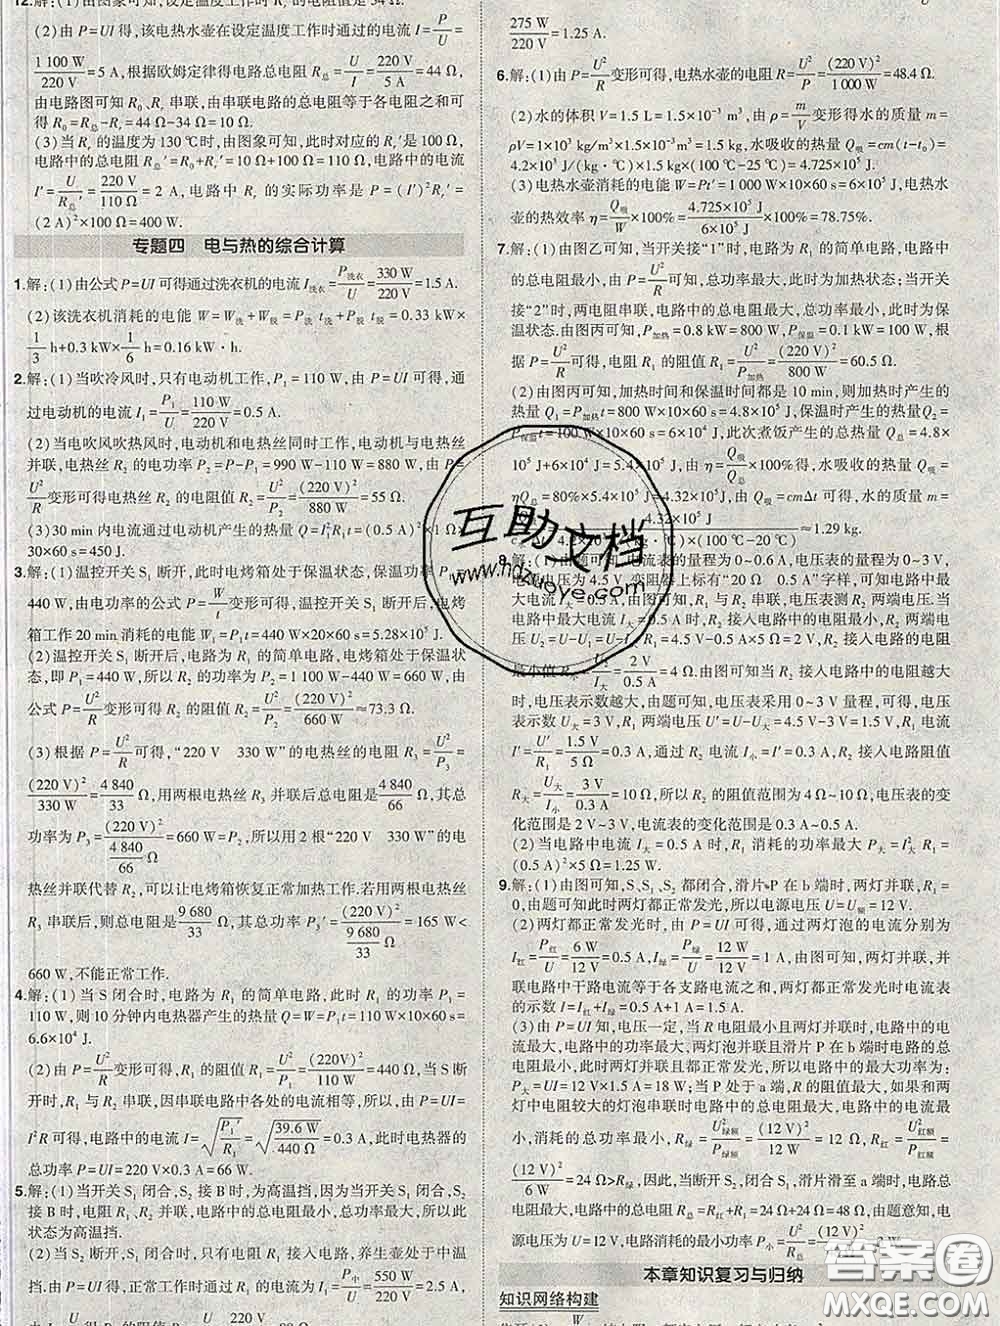 12.解:(1)由图象可知,设定温度工作时 R_r 的电阻值是 34 Ω.
(2)由 P=UI 得,该电热水壶在设定温度工作时通过的电流 I=P/U=
1 100 W/220 V=5 A,根据欧姆定律得电路总电阻 R总=U/I=220 V/5 A=44 Ω,
由电路图可知 R0、Rr 串联,由串联电路的总电阻等于各电阻之和可
得 R0=R总-Rr=44 Ω-34 Ω=10 Ω.
(3)当 Rr 的温度为 130 ℃时,由图象可知,此时对应的 Rr′是 100 Ω,
电路中的总电阻 R总′=R0+Rr′=10 Ω+100 Ω=110 Ω,电路中的电流
I′=U/R总′=220 V/110 Ω=2 A,电路中 Rr 的实际功率是 P=(I′)²Rr′=
(2 A)²×100 Ω=400 W.
专题四 电与热的综合计算
1.解:(1)由公式 P=UI 可得通过洗衣机的电流 I洗衣=P洗衣/U=330 W/220 V=1.5 A.
(2)该洗衣机消耗的电能 W=W洗+W脱=P洗衣t洗+P脱t脱=0.33 kW×
1/3 h+0.3 kW×1/6 h=0.16 kW·h.
2.解:(1)当吹冷风时,只有电动机工作,P1=110 W,由 P=UI 可得,通
过电动机的电流 I1=P1/U=110 W/220 V=0.5 A.
(2)当电吹风吹热风时,电动机和电热丝同时工作,电动机与电热丝
并联,电热丝 R2 的电功率 P2=P-P1=990 W-110 W=880 W,由 P=
U²/R变形可得电热丝 R2 的电阻值 R2=U²/P2=(220 V)²/880 W=55 Ω.
(3)30 min 内电流通过电动机产生的热量 Q=I1²R1t=(0.5 A)²×1 Ω×
30×60 s=450 J.
3.解:(1)温控开关 S1 断开,此时电烤箱处于保温状态,保温功率 P1=
440 W,由电功率的公式 P=W/t变形可得,温控开关 S1 断开后,电烤
箱工作 20 min 消耗的电能 W1=P1t=440 W×20×60 s=5.28×10⁵ J.
(2)温控开关 S1 断开后,电路为 R1 的简单电路,电烤箱处于保温状
态,即 P1=440 W,所以 R2 的功率 P2=P-P1=1 100 W-440 W=660 W,由
公式 P=U²/R变形可得 R2 的阻值 R2=U²/P2=(220 V)²/660 W≈73.3 Ω.
(3)根据 P=U²/R可得,“220 V 330 W”的电热丝的电阻 R3=U²/P3=
(220 V)²/330 W=4 840/33 Ω
功率为 P3=(220 V)²/(4 840/66 Ω)=660 W=P2,所以用 2 根“220 V 330 W”的电
热丝并联代替 R2,可以让电烤箱恢复正常加热工作.若用两根电热丝
R3 串联后,则总电阻是9 680/33 Ω,其总功率 P3′=(220 V)²/(9 680/33 Ω)=165 W<
660 W,不能正常工作.
4.解:(1)当 S 闭合时,电路为 R1 的简单电路,此时 R1 的功率 P1=
110 W,则 10 分钟内电热器产生的热量 Q=W=P1t=110 W×10×60 s=
6.6×10⁴ J.
(2)由 P=U²/R可得,R1 的阻值 R1=U²/P1=(220V)²/110 W=440 Ω,当 S 断
开时,R1 与 R2 串联,因串联电路中各处的电流相等,所以,由 P=
I²R 可得,电路中的电流 I=√(P1′/R1)=√(39.6 W/440 Ω)=0.3 A,此时电热器的
总功率 P=UI=220 V×0.3 A=66 W.
5.解:(1)当开关 S1 闭合,S2 接 B 时,为高温挡,因为当开关 S1 闭合,S2
接 B 时,电阻 R1、R2 并联,电路中的总电阻最小,总功率最大,所以此
状态为高温挡.
(2)当 S2 断开,S1 闭合时,只有电阻 R1 接入电路,养生壶处于中温
挡,由 P=UI 得,正常工作时通过 R1 的电流 I=P中/U=550 W/220 V=2.5 A,
275 W/220 V=1.25 A.
6.解:(1)由 P=U²/R变形可得,电热水壶的电阻 R=U²/P=(220 V)²/1 000 W=48.4 Ω.
(2)水的体积 V=1.5 L=1.5×10⁻³ m³,由 ρ=m/V变形得水的质量 m=
ρV=1×10³ kg/m³×1.5×10⁻³ m³=1.5 kg,水吸收的热量 Q吸=cm(t-t0)=
4.2×10³ J/(kg·℃)×1.5 kg×(100 ℃-25 ℃)=4.725×10⁵ J.
(3)电热水壶消耗的电能 W=Pt′=1 000 W×10×60 s=6×10⁵ J,电热水
壶的热效率 η=Q吸/W×100%=4.725×10⁵ J/6×10⁵ J×100%=78.75%.
7.解:(1)由图乙可知,当开关接“1”时,电路为 R1 的简单电路,电路中的
总电阻最小,由 P=U²/R可知,总功率最大,此时为加热状态;当开关
接“2”时,两电阻串联,电路中的总电阻最大,总功率最小,此时为保
温状态.由图丙可知,P加热=0.8 kW=800 W,P保温=0.1 kW=100 W,根
据 P=U²/R可得,电阻 R1 的阻值 R1=U²/P加热=(220 V)²/800 W=60.5 Ω.
(2)由图丙可知,加热时间和保温时间都是 10 min,则加热时产生的
热量 Q1=P加热t=800 W×10×60 s=4.8×10⁵ J,保温时产生的热量Q2=
P保温t=100 W×10×60 s=6×10⁴ J,此次煮饭产生的总热量 Q总=4.8×
10⁵ J+6×10⁴ J=5.4×10⁵ J,由 η=Q吸/Q总×100%得,水吸收的热量 Q吸=
ηQ总=80%×5.4×10⁵ J=4.32×10⁵ J,由 Q吸=cmΔt 可得,水的质量 m=
4.32×10⁵ J ×(100 ℃-20 ℃)≈1.29 kg.
电流表的量程为 0~0.6 A,电压表的量程为 0~3 V,
电源电压为 4.5 V,变阻器上标有“20 Ω 0.5 A”字样,可知电路中最
大电流 I大=0.5 A,由图可知,R1 与 R2 串联,电压表测 R2 两端电压.当
电路中的电流 I大=0.5 A 时,R2 接入电路的电阻最小,电压表的示数最小,电
压 U2=U-U1=U-I大R1=4.5 V-0.5 A×5 Ω=2 V,R2 接入电路的电阻
最小值 R小=U2/I大=2 V/0.5 A=4 Ω,由图可知当 R2 接入电路中的电阻越大
时,电压表示数越大,由题可知,电压表采用 0~3 V 量程,可得,电压
表示数 U大=3 V,R1 两端电压 U′=U-U大=4.5 V-3 V=1.5 V,R1 电流
I′=U′/R1=1.5 V/5 Ω=0.3 A,通过 R2 电流 I小=I′=0.3 A,R2 接入电路阻值
R大=U大/I小=3 V/0.3 A=10 Ω,所以 R2 的阻值范围为 4 Ω~10 Ω,电压表的变
化范围为 2 V~3 V,电流表的变化范围为 0.3 A~0.5 A.
(2)当电路中电流 I大=0.5 A 时,R1 消耗的功率最大 P大=I大² R1=
(0.5 A)²×5 Ω=1.25 W.
9.解:(1)由图可知,S、S1、S2 都闭合,滑片 P 在 b 端时,两灯并联,R=
0,由题可知此时两灯都正常发光,所以电源电压 U=U额=12 V.
(2)两灯都正常发光时,由 P=UI 可得,通过两灯泡的电流分别为
I红=P红/U=6 W/12 V=0.5 A,I绿=P绿/U=12 W/12 V=1 A,
联电路中干路电流等于各支路电流之和,可得,两灯都正常发光时电流表
的示数 I=I红+I绿=0.5 A+1 A=1.5 A.
(3)由 P=UI 知,电压一定,当 R 电阻最小且两灯并联时,电路中的电流
最大,电路中的功率最大,两灯并联且滑片P在b端时电路的总电
阻最小,两灯都正常发光,所以电路中的最大功率为:
P大=UI=12 V×1.5 A=18 W;当 P 处于 a 端,R 的阻值最大,若两
灯中电阻较大的灯泡串联时电路中的总电阻最大,电路中的电流最
小,消耗的总功率最小,R绿=U绿额²/P绿额=(12 V)²/12 W=12 Ω,R红=U红额²/P红额=
(12 V)²/6 W=24 Ω>R绿,因此,当断开 S2,闭合 S1,滑片滑至 a 端时,电路
中的总电阻最大,电路中的总电阻 R总=R红+R=24 Ω+24 Ω=48 Ω,由题意知,电
源电压为 U=12 V,电路消耗的最小功率 P小=U²/R总=(12 V)²
本章知识复习与归纳
知识网络构建
互助文档
www.hdzuoye.com
答案圈
MXQE.COM